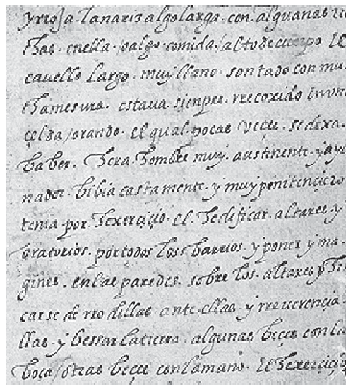 y rroja. la naris algo larga. con alguanas
chas. en ella. y algo comida / alto de cuerpo
cavello largo. muy llano. sontado con mu
cha mesura. estava sienpre. rrecoxido
celda / orando. el qual pocas veces. se dexa
ba ber. hera honbre muy. austinente. y ayu
nador. bibia castamente. y muy penitencia
tenia por hexercisio. el hedificar. altares. y
oratorios. por todos los barrios. y poner y ma
gines. en las paredes. sobre los. altares y
carse de rrodillas. ante ellas y rreverencia
llas. y bessar la tierra. algunas beces con la
boca / otras beces con la mano. el hexercicio